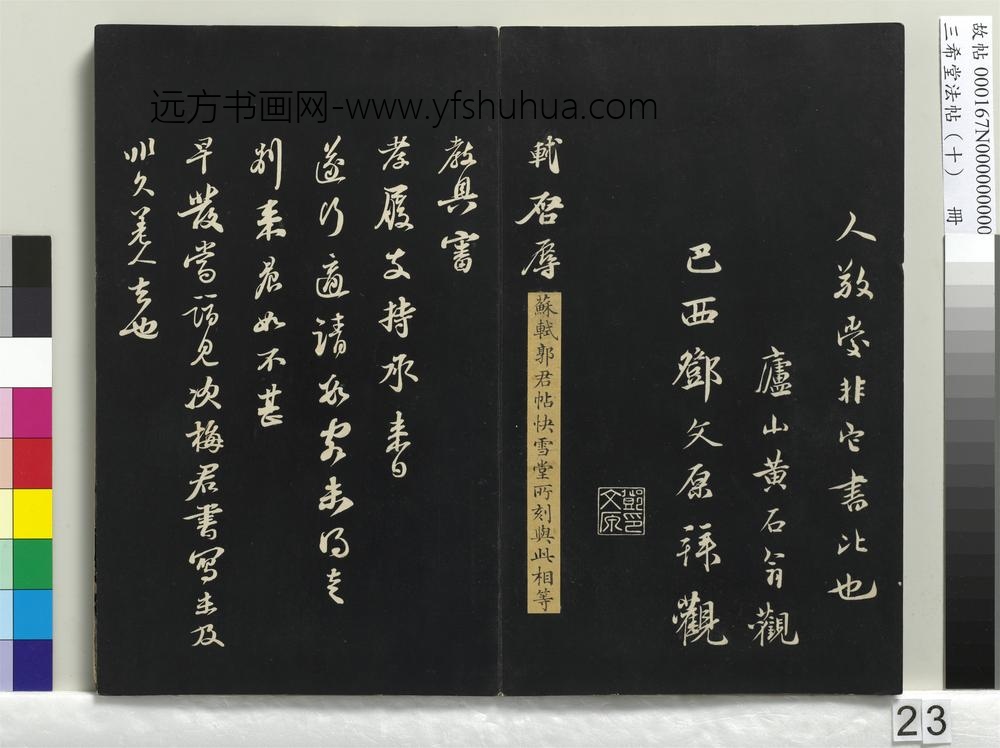 远方书画网-www.yfshuhua.com
故帖 000167N000000000
三希堂法帖（十） 册
人敬愛非它書比也
廬山黃石翁觀
巴西鄧文原拜觀
鄧文原印
蘇軾郭君帖快雪堂所刻與此相等
軾啓辱
教具審
孝履支持承來日
遂行適請數客未得走
別來晨如不甚
早發當詣見次梅君書寫未及
非久差人去也
23